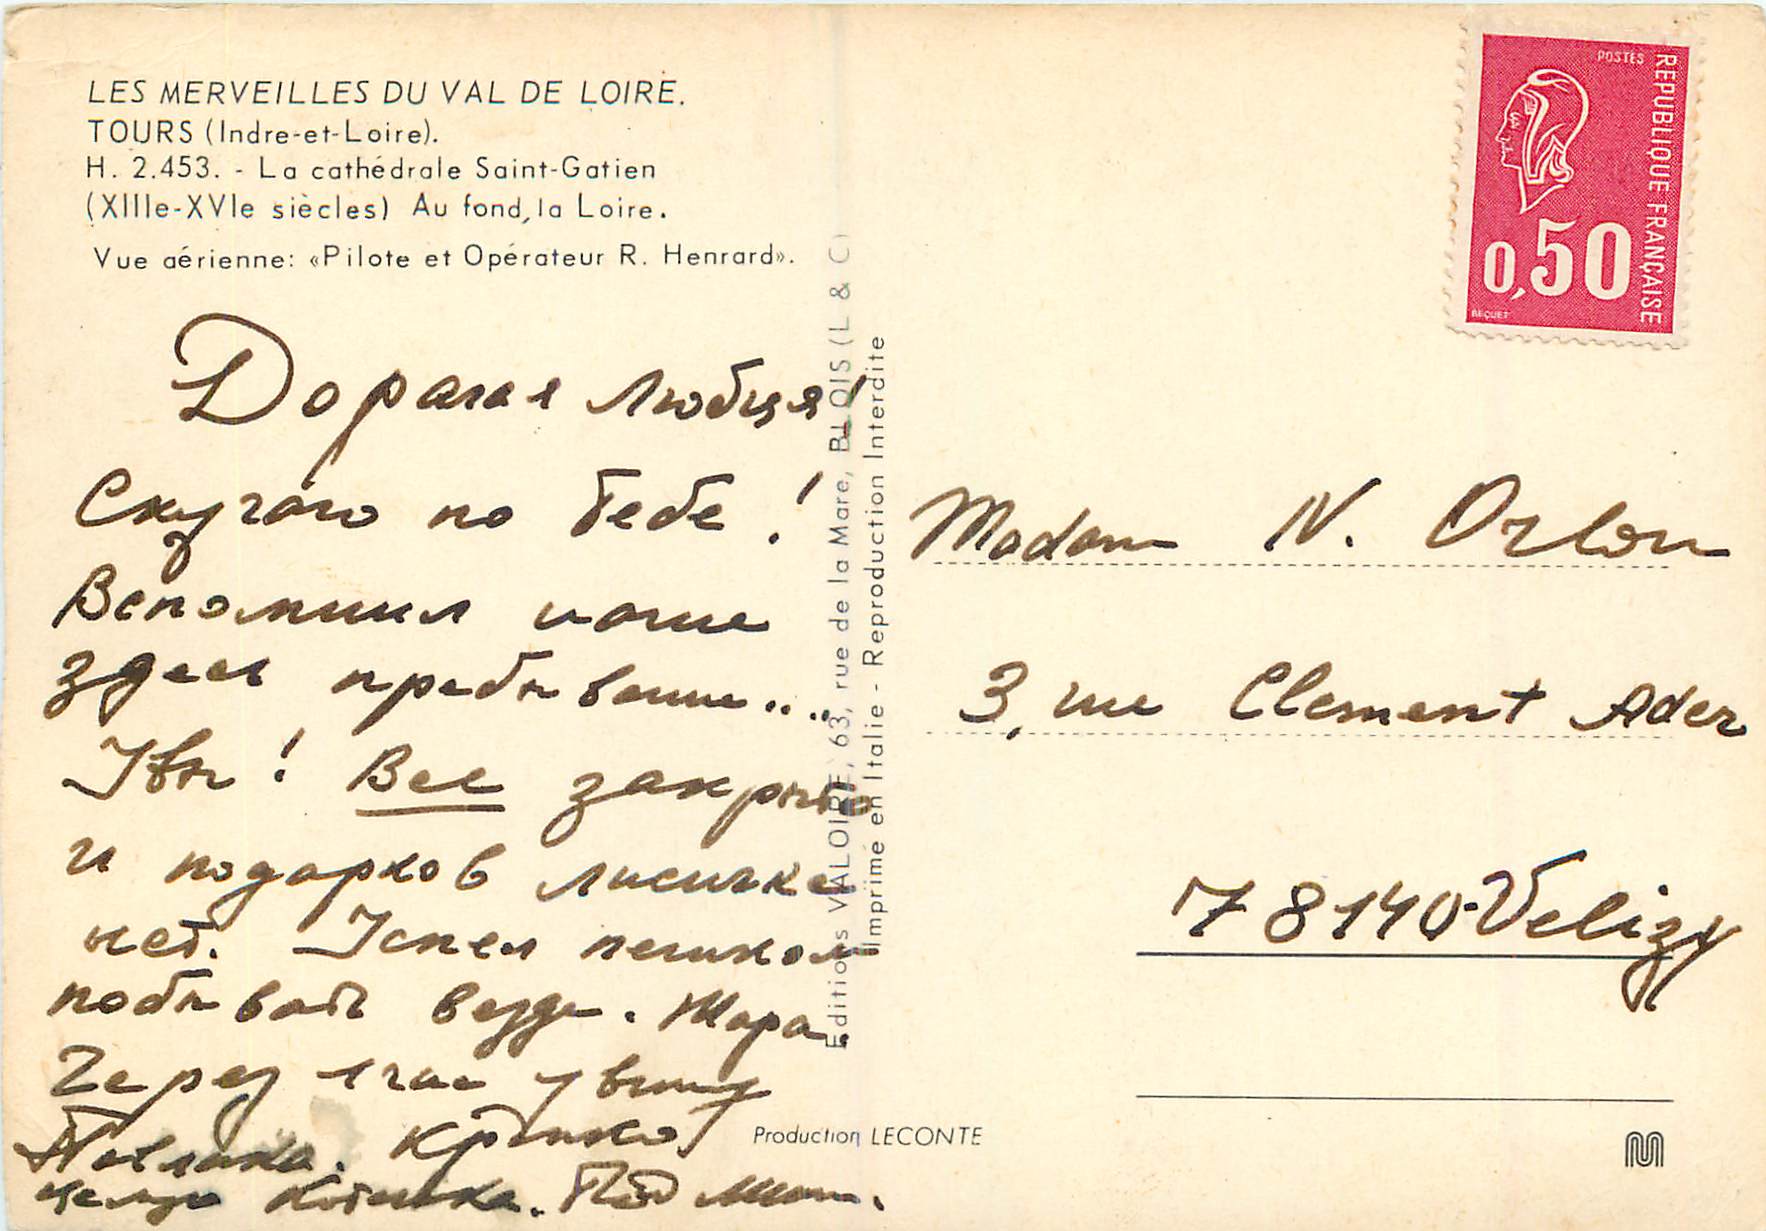 LES MERVEILLES DU VAL DE LOIRE.
TOURS (Indre-et-Loire).
H. 2.453. - La cathédrale Saint-Gatien
(XIIIe-XVIe siècles) Au fond, la Loire.
Vue aérienne: «Pilote et Opérateur R. Henrard».
Дорогая Любця!
Скучаю по тебе!
Вспомнил наше
здесь пребывание....
Увы! Все закрыто
и подарков лисичке
нет. Успел пешком
побывать везде. Жара.
Через 1 час увижу
Павлика. Крепко
целую котишка.
Editions VALOIRE, 63, rue de la Mare, BLOIS (L & C)
Imprimé en Italie - Reproduction Interdite
Production LECONTE
POSTES
REPUBLIQUE FRANÇAISE
0,50
BEQUET
Madame N. Orlov
3, rue Clement Ader
78140-Velizy